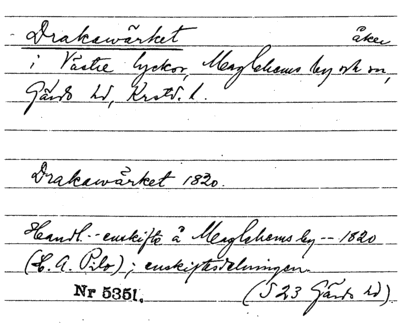 Drakawärket åker
i Västre lyckor, Maglehems by och sn,
Gärds hd, Krstd. l.
Drakawärket 1820.
Handl. - enskifte å Maglehems by -- 1820
(E. A. Pilo); enskiftesdelningen
Nr 5351. (S 23 Gärds hd)